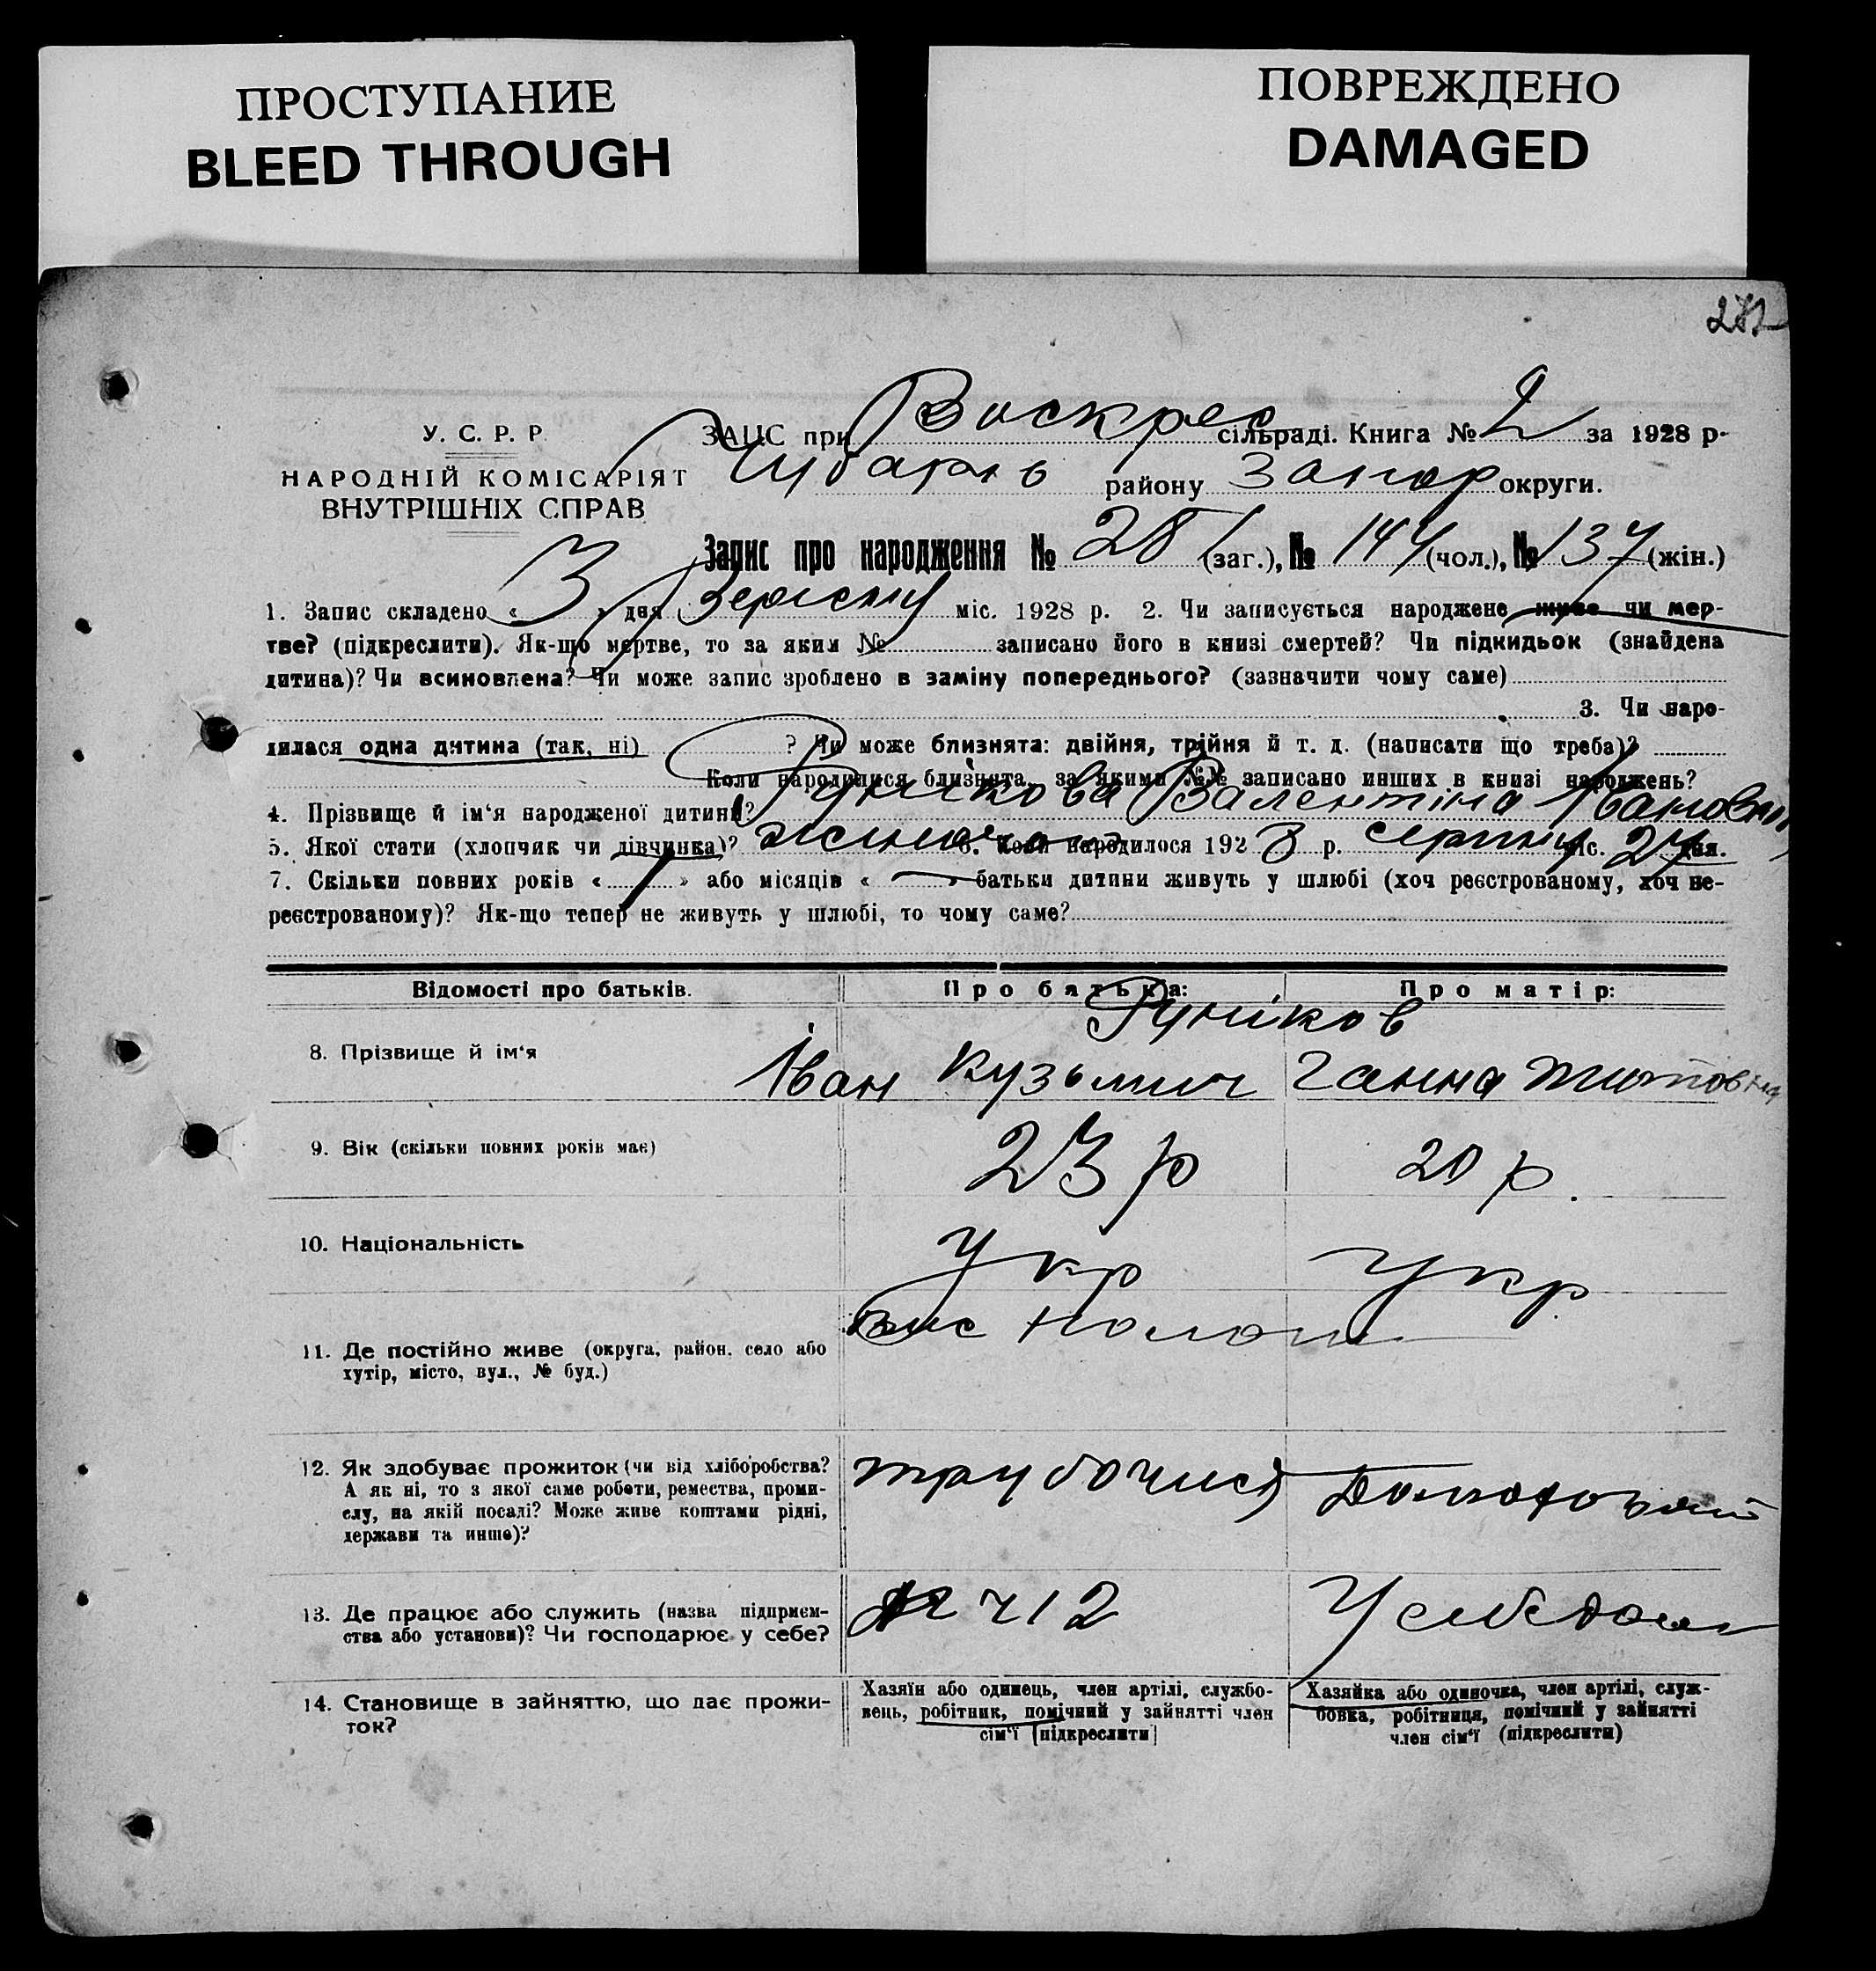 ПРОСТУПАНИЕ
BLEED THROUGH
ПОВРЕЖДЕНО
DAMAGED
У. С. Р. Р
НАРОДНІЙ КОМІСАРІЯТ
ВНУТРІШНІХ СПРАВ
ЗАЦС при Воскрес сільраді. Книга № 2 за 1928 р.
району Запор округи.
Запис про народження № 281 (заг.), № 144 (чол.), № 137 (жін.)
1. Запис складено « 3 » дня Вересня міс. 1928 р. 2. Чи записується народжене живе чи мер-
тве? (підкреслити). Як-що мертве, то за яким № записано його в книзі смертей? Чи підкидьок (знайдена
дитина)? Чи всиновлена? Чи може запис зроблено в заміну попереднього? (зазначити чому саме)
3. Чи наро-
дилася одна дитина (так, ні) ? Чи може близнята: двійня, трійня й т. д. (написати що треба)?
Коли народилися близнята, за якими №№ записано инших в книзі народжень?
4. Прізвище й ім‘я народженої дитини? Рунікова Валентіна Івановна
5. Якої стати (хлопчик чи дівчинка)? 6. Коли народилося 1928 р. серпня міс. 27 дня.
7. Скільки повних років « 1 » або місяців « — » батьки дитини живуть у шлюбі (хоч реєстрованому, хоч не-
реєстрованому)? Як-що тепер не живуть у шлюбі, то чому саме?
Відомості про батьків. Про батька: Про матір:
Руніков
8. Прізвище й ім‘я Іван Кузьмич Ганна Титовна
9. Вік (скільки повних років має) 23 р 20 р.
10. Національність Укр Укр
11. Де постійно живе (округа, район, село або
хутір, місто, вул., № буд.)
12. Як здобуває прожиток (чи від хліборобства?
А як ні, то з якої саме роботи, ремества, проми-
слу, на якій посаді? Може живе коштами рідні,
держави та инше)?
трубочист
13. Де працює або служить (назва підприєм-
ства або установи)? Чи господарює у себе?
412
14. Становище в зайняттю, що дає прожи-
ток?
Хазяїн або одинець, член артілі, службо-
вець, робітник, помічний у зайнятті член
сім‘ї (підкреслити)
Хазяйка або одиночка, член артілі, служ-
бовка, робітниця, помічний у зайнятті
член сім‘ї (підкреслити)